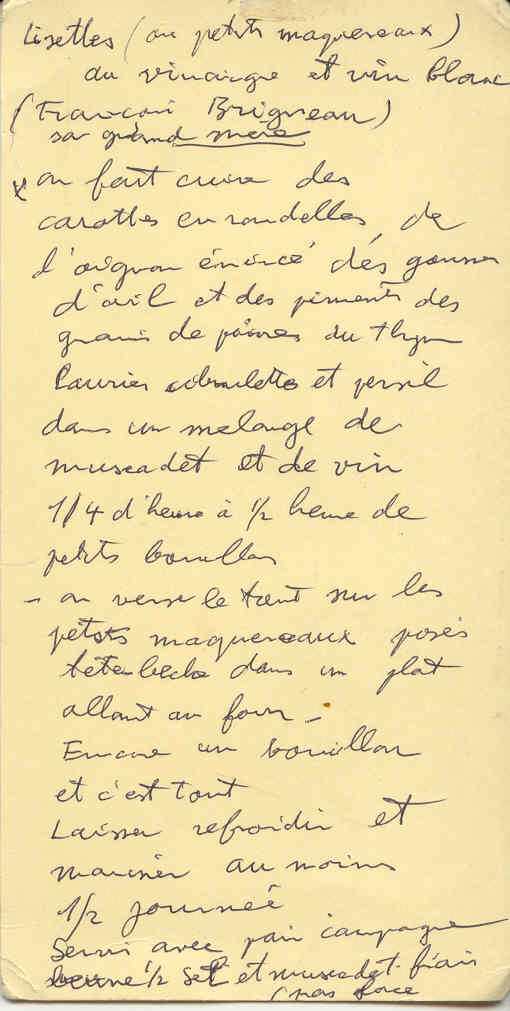 Lisettes (ou petits maquereaux)
au vinaigre et vin blanc
(François Brigneau)
sa grand mère
x on fait cuire des
carottes en rondelles, de
l'oignon émincé, des gousses
d'ail et des piments des
grains de poivres du thym
laurier ciboulette et persil
dans un mélange de
muscadet et de vin
1/4 d'heure à 1/2 heure de
petits bouillons
- on verse le tout sur les
petits maquereaux posés
tête bêche dans un plat
allant au four -
Encore un bouillon
et c'est tout
Laisser refroidir et
mariner au moins
1/2 journée
Servi avec pain campagne
beurre 1/2 sel et muscadet frais
(pas